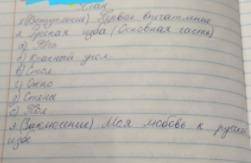 План
1 (Вступление) Первое впечатление
2 Русская изба (Основная часть)
а) Печь
б) Красный угол
в) Стол
г) Окно
д) Стены
е) Пол
3 (Заключение) Моя любовь к русской
избе